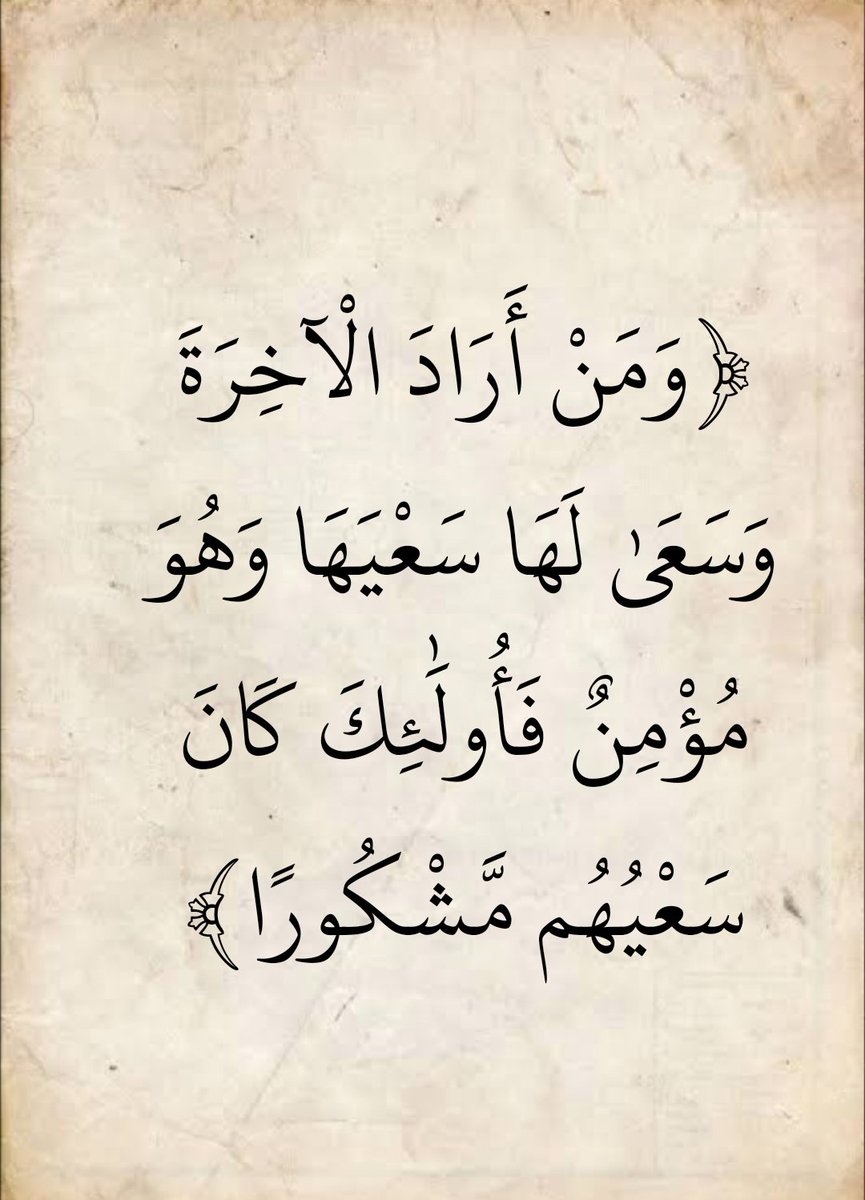 ﴿وَمَنْ أَرَادَ الْآخِرَةَ
وَسَعَىٰ لَهَا سَعْيَهَا وَهُوَ
مُؤْمِنٌ فَأُولَٰئِكَ كَانَ
سَعْيُهُم مَّشْكُورًا﴾